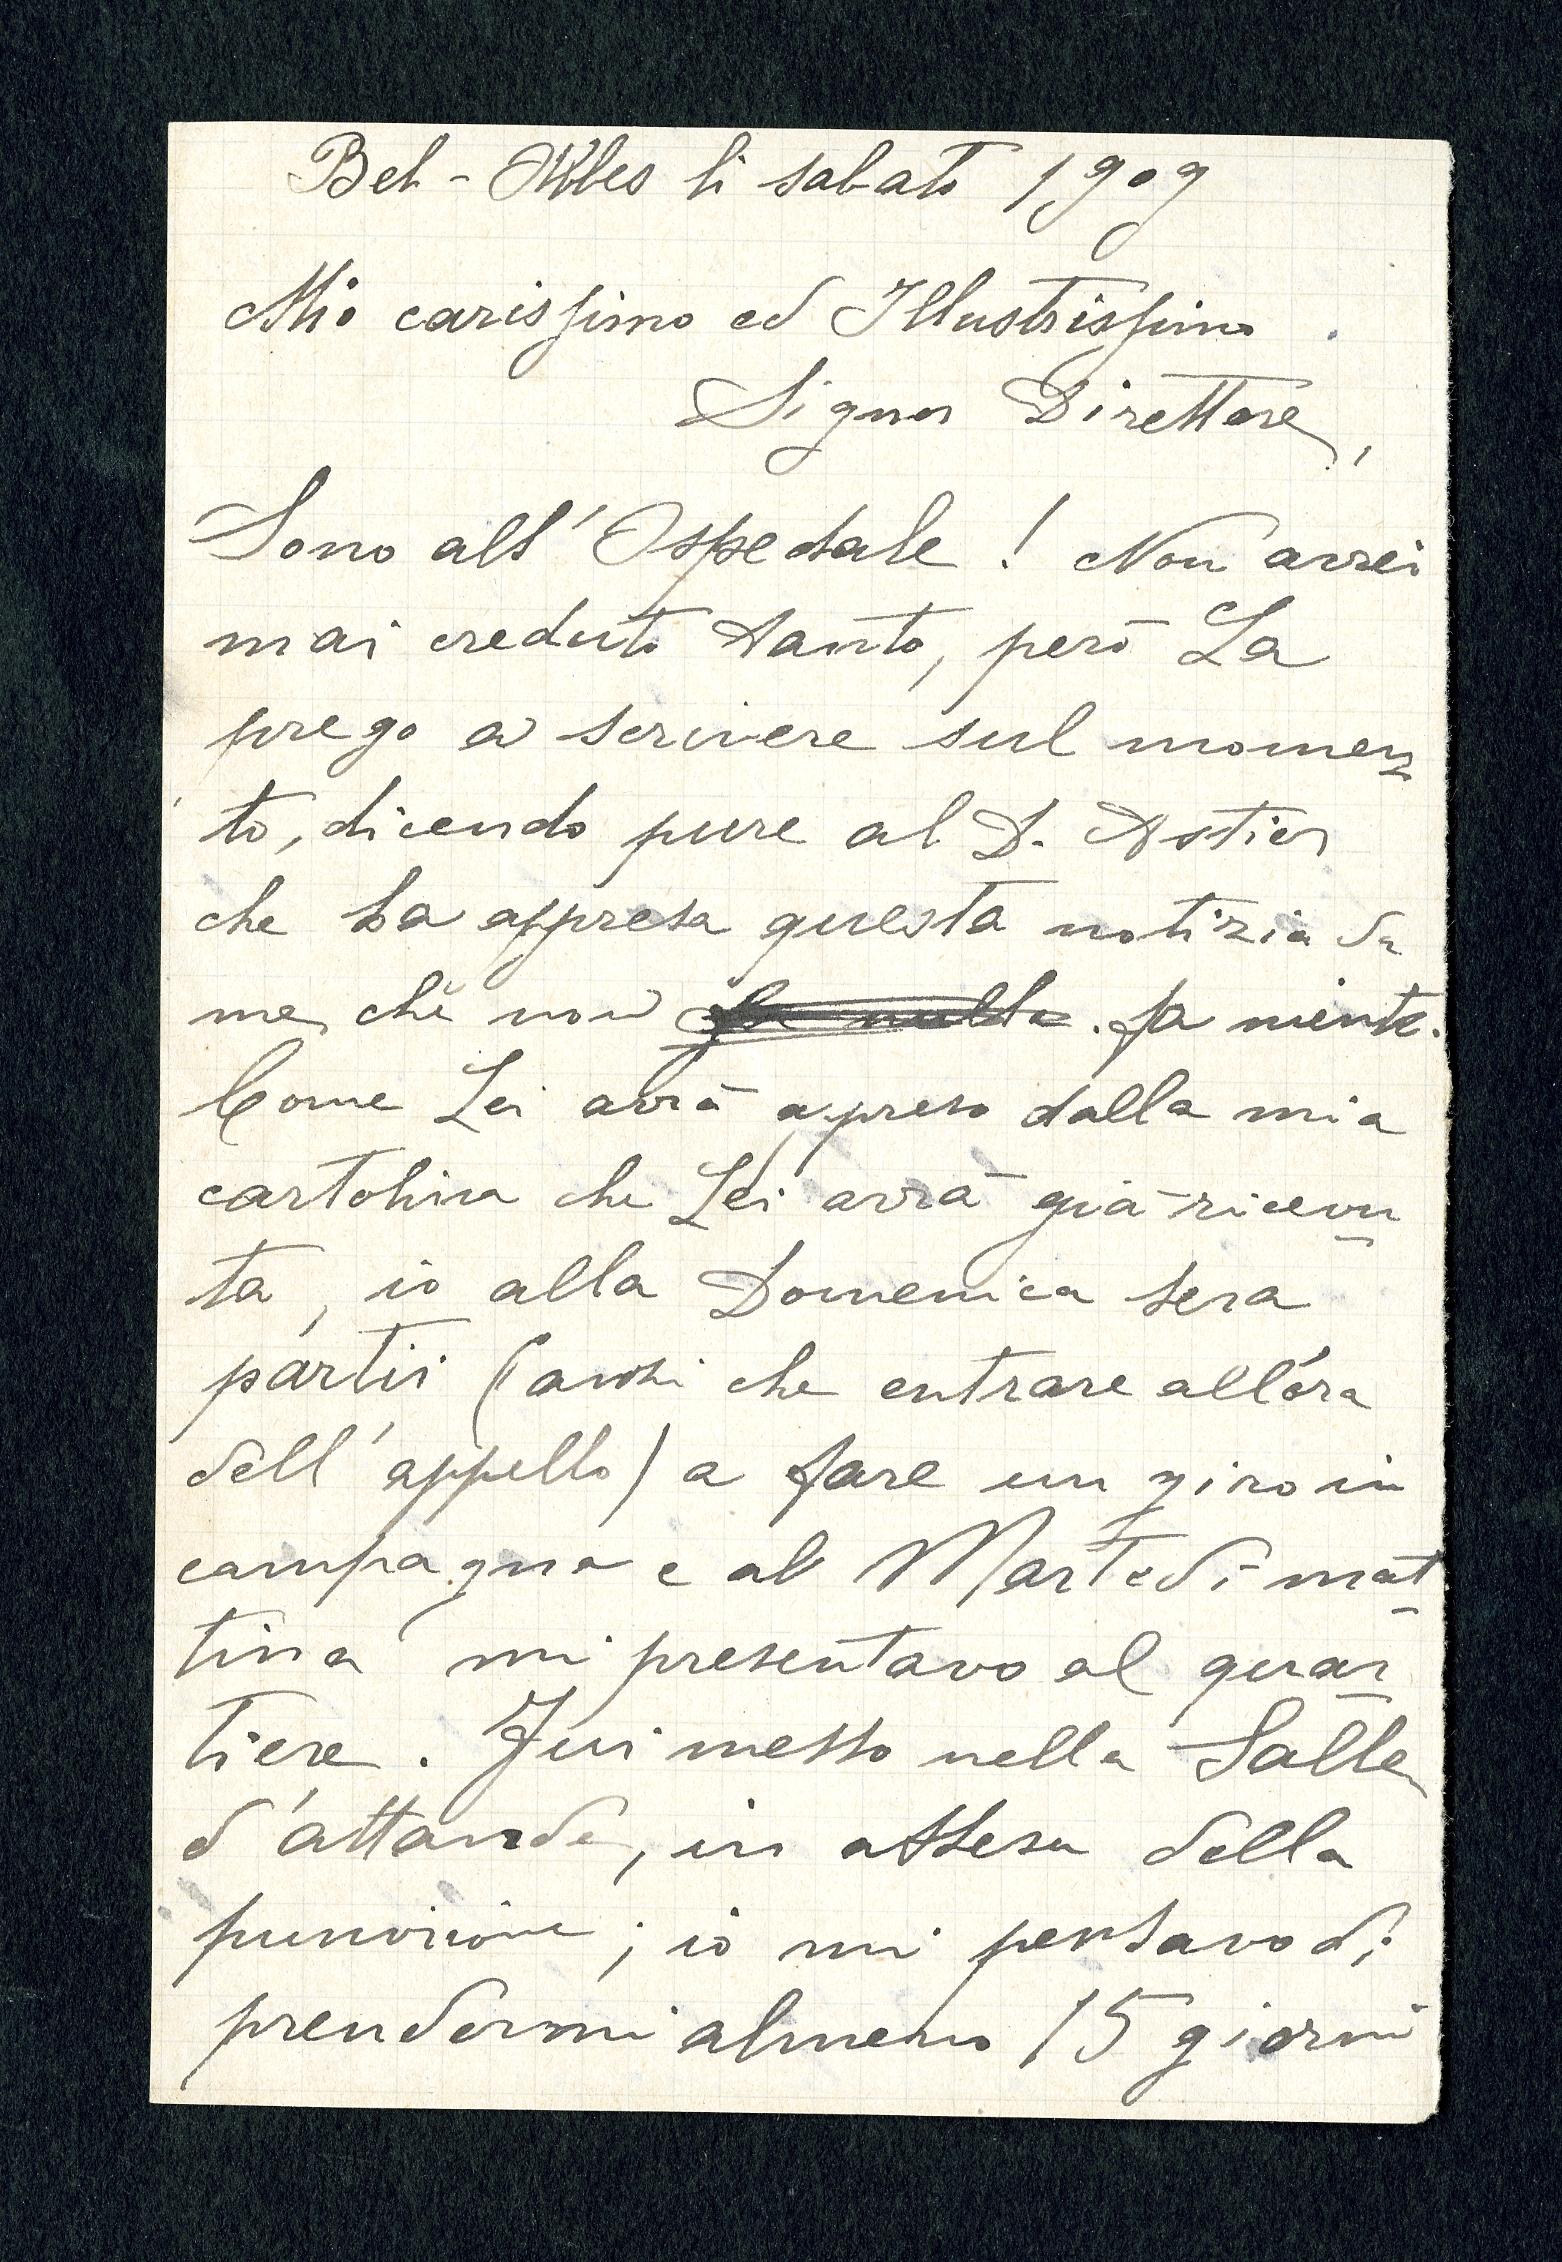 Bel-Abbes li sabato 1909
Mio carissimo ed Illustrissimo
Signor Direttore,
Sono all'Ospedale! Non avrei
mai creduto tanto, però La
prego a scrivere sul momen
to, dicendo pure al D. Astier
che ha appresa questa notizia da
me, chè non fa nulla. fa niente.
Come Lei avrà apreso dalla mia
cartolina che Lei avrà già ricevu
ta, io alla Domenica sera
partii (anzi che entrare all'ora
dell'appello) a fare un giro in
campagna e al Martedì mat
tina mi presentavo al quar
tiere. Fui messo nella Salle
d'attande, in attesa della
punizione; io mi pensavo di
prendermi almeno 15 giorni